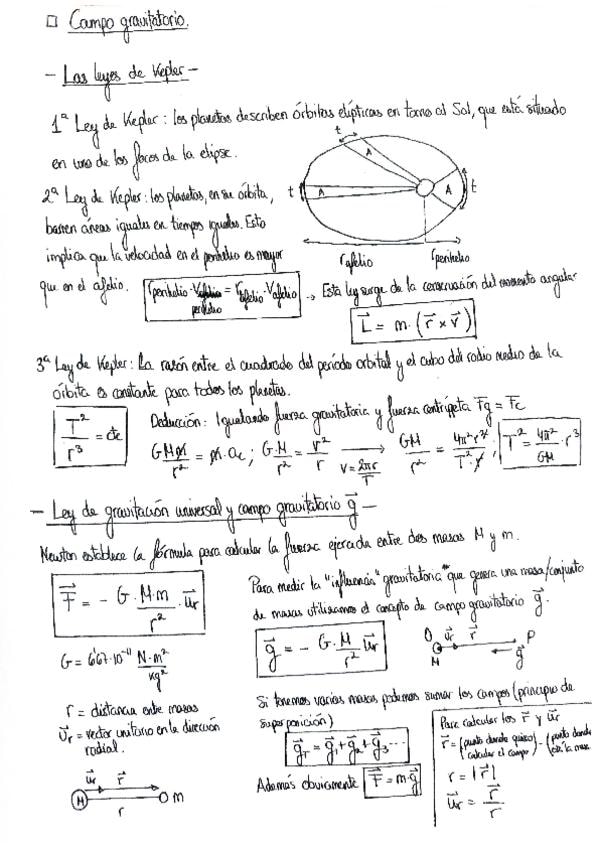 □ Campo gravitatorio.
- Las leyes de Kepler -
1ª Ley de Kepler: los planetas describen órbitas elípticas en torno al Sol, que está situado
en uno de los focos de la elipse.
2ª Ley de Kepler: los planetas, en su órbita,
barren áreas iguales en tiempos iguales. Esto
implica que la velocidad en el perihelio es mayor
que en el afelio.
t
A
t
A
A
t
r afelio
r perihelio
r perihelio · V perihelio = r afelio · V afelio
→ Esta ley surge de la conservación del momento angular
L⃗ = m · (r⃗ x v⃗)
3ª Ley de Kepler: La razón entre el cuadrado del periodo orbital y el cubo del radio medio de la
órbita es constante para todos los planetas.
T²/r³ = cte
Deducción: Igualando fuerza gravitatoria y fuerza centrípeta Fg = Fc
GMm/r² = m·ac ; G·M/r² = v²/r → v = 2πr/T GM/r² = 4π²r²/T²·r ; T² = 4π²/GM · r³
- Ley de gravitación universal y campo gravitatorio g⃗ -
Newton establece la fórmula para calcular la fuerza ejercida entre dos masas M y m.
F⃗ = - G·M·m/r² · u⃗r
G = 6'67·10⁻¹¹ N·m²/kg²
r = distancia entre masas
u⃗r = vector unitario en la dirección
radial.
u⃗r r⃗
M m
r
Para medir la "influencia" gravitatoria que genera una masa/conjunto
de masas utilizamos el concepto de campo gravitatorio g⃗.
g⃗ = - G·M/r² u⃗r
O u⃗r r⃗ P
M g⃗
Si tenemos varias masas podemos sumar los campos (principio de
superposición)
g⃗T = g⃗1 + g⃗2 + g⃗3 ...
Además obviamente F⃗ = m·g⃗
Para calcular los r⃗ y u⃗r
r⃗ = (punto donde quiero calcular el campo) - (punto donde está la masa
r = |r⃗|
u⃗r = r⃗/r